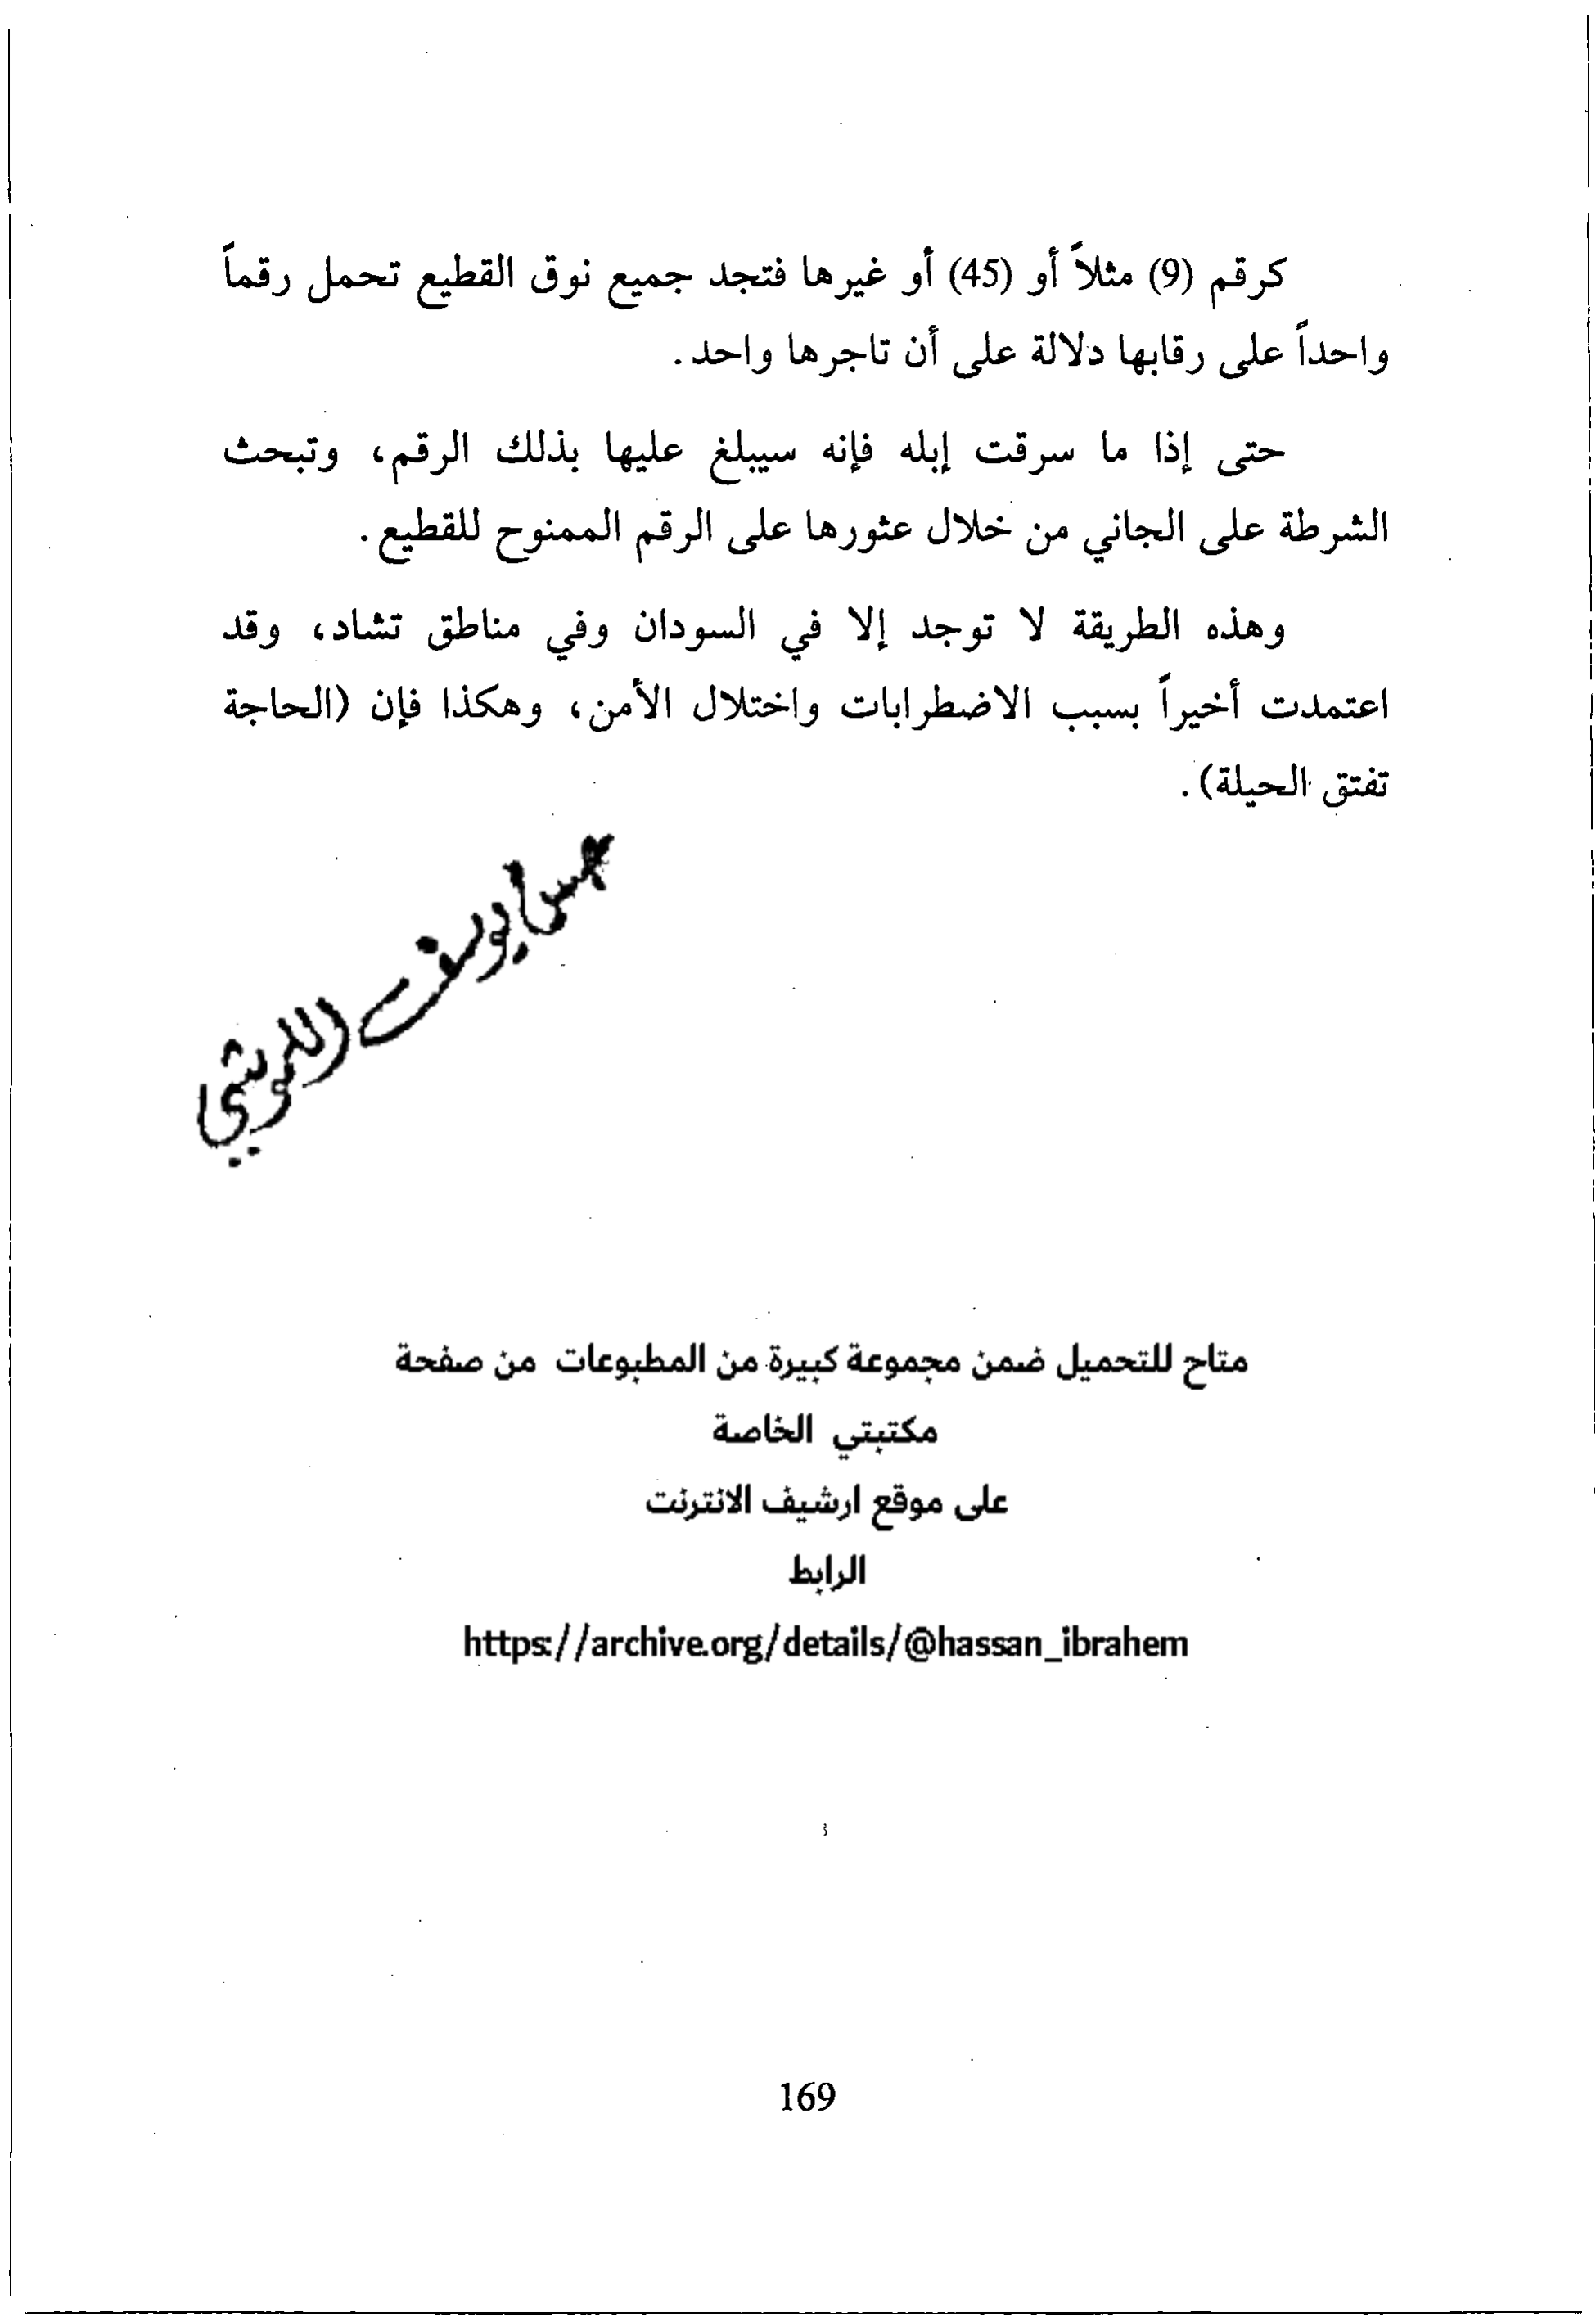 كرقم (9) مثلاً أو (45) أو غيرها فتجد جميع نوق القطيع تحمل رقماً
واحداً على رقابها دلالة على أن تاجرها واحد.
حتى إذا ما سرقت إبله فإنه سيبلغ عليها بذلك الرقم، وتبحث
الشرطة على الجاني من خلال عثورها على الرقم الممنوح للقطيع.
وهذه الطريقة لا توجد إلا في السودان وفي مناطق تشاد، وقد
اعتمدت أخيراً بسبب الاضطرابات واختلال الأمن، وهكذا فإن (الحاجة
تفتق الحيلة).
يوسف
متاح للتحميل ضمن مجموعة كبيرة من المطبوعات من صفحة
مكتبتي الخاصة
على موقع ارشيف الانترنت
الرابط
https://archive.org/details/@hassan_ibrahem
169